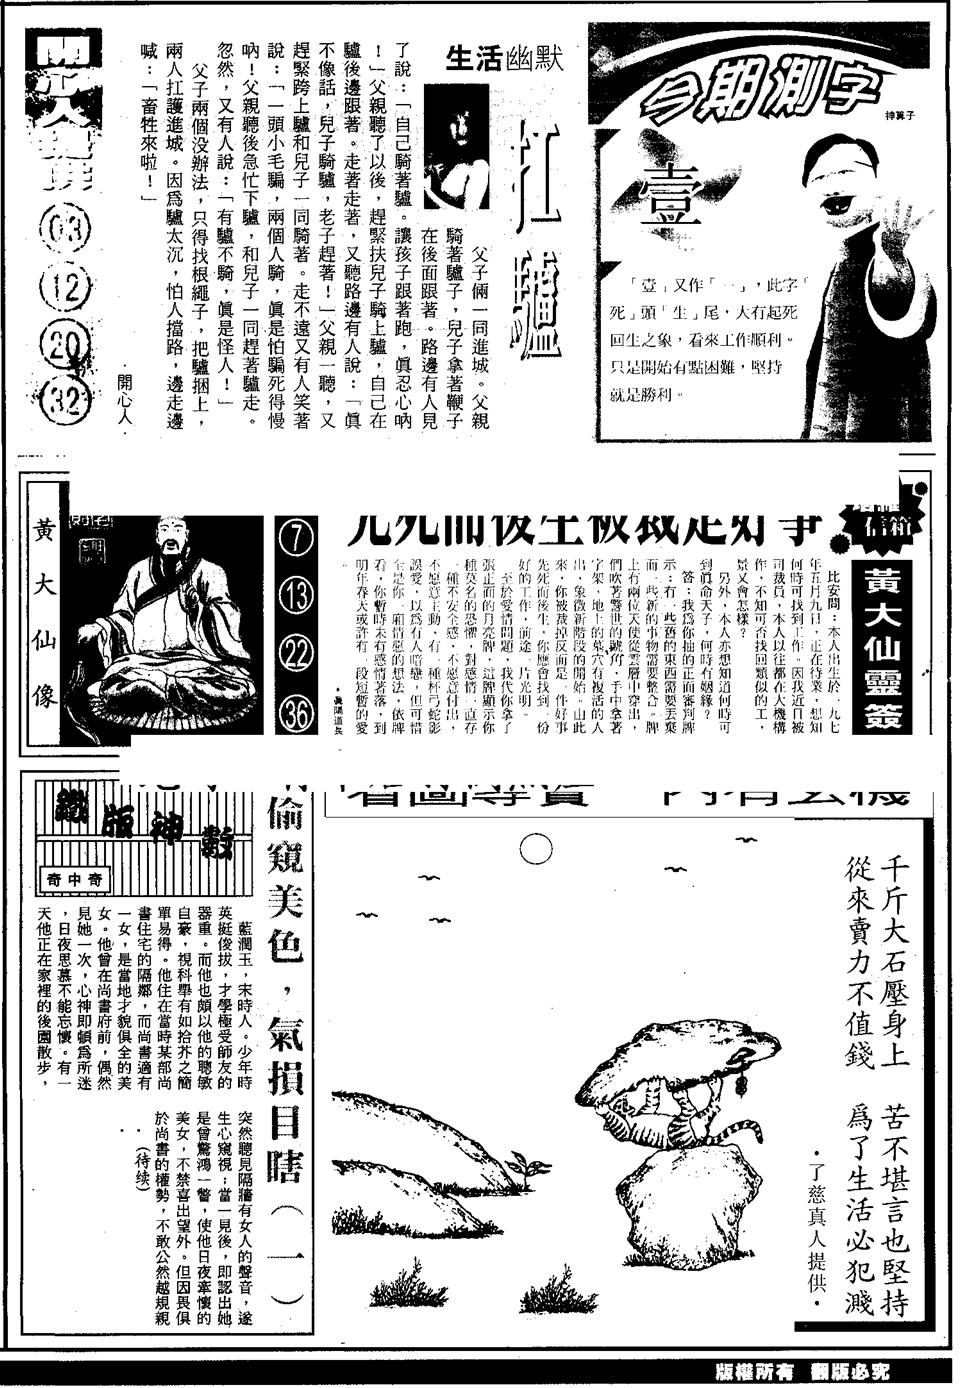 今期測字
神算子
壹
「壹」又作「一」，此字「
死」頭「生」尾，大有起死
回生之象，看來工作順利。
只是開始有點困難，堅持
就是勝利。
生活幽默
扛驢
父子倆一同進城。父親
騎著驢子，兒子拿著鞭子
在後面跟著。路邊有人見
了說：「自己騎著驢。讓孩子跟著跑，眞忍心吶
！」父親聽了以後，趕緊扶兒子騎上驢，自己在
驢後邊跟著。走著走著，又聽路邊有人說：「眞
不像話，兒子騎驢，老子趕著！」父親一聽，又
趕緊跨上驢和兒子一同騎著。走不遠又有人笑著
說：「一頭小毛騙，兩個人騎，眞是怕騙死得慢
吶！父親聽後急忙下驢，和兒子一同趕著驢走。
忽然，又有人說：「有驢不騎，眞是怪人！」
父子兩個没辦法，只得找根繩子，把驢捆上，
兩人扛護進城。因爲驢太沉，怕人擋路，邊走邊
喊：「畜牲來啦！」
·開心人·
03
12
20
32
信箱
黃大仙靈簽
先死而後生被裁是好事
比安問：本人出生於一九七
年五月九日，正在待業，想知
何時可找到工作。因我近日被
司裁員，本人以往都在大機構
作，不知可否找回類似的工，
景又會怎樣？
另外，本人亦想知道何時可
到眞命天子，何時有姻緣？
答：我爲你抽的正面審判牌
示：有一些舊的東西需要丟棄
而一些新的事物需要整合。牌
上有兩位天使從雲層中穿出，
們吹著警世的號角，手中拿著
字架，地上的墓穴有複活的人
出，象徵新階段的開始。由此
來，你被裁掉反而是一件好事
先死而後生，你應會找到一份
好的工作，前途一片光明。
至於愛情問題，我代你拿了
張正面的月亮牌，這牌顯示你
種莫名的恐懼，對感情一直存
一種不安全感，不愿意付出，
不愿意主動，有一種杯弓蛇影
誤愛，以爲有人暗戀，但可惜
全是你一廂情愿的想法，依牌
看，你暫時未有感情著落，到
明年春天或許有一段短暫的愛
7
13
22
36
黃大仙像
機玄有內
導尋圖看
千斤大石壓身上　苦不堪言也堅持
從來賣力不值錢　爲了生活必犯濺
·了慈真人提供·
偷窺美色，氣損目瞎（一）
鐵版神數
奇中奇
藍潤玉，宋時人。少年時
英挺俊拔，才學極受師友的
器重。而他也頗以他的聰敏
自豪，視科舉有如拾芥之簡
單易得。他住在當時某部尚
書住宅的隔鄰，而尚書適有
一女，是當地才貌俱全的美
女。他曾在尚書府前，偶然
見她一次，心神即頓爲所迷
，日夜思慕不能忘懷。有一
天他正在家裡的後園散步，
突然聽見隔牆有女人的聲音，遂
生心窺視；當一見後，即認出她
是曾驚鴻一瞥，使他日夜牽懷的
美女，不禁喜出望外。但因畏俱
於尚書的權勢，不敢公然越規親
．　（待续）
版權所有　翻版必究